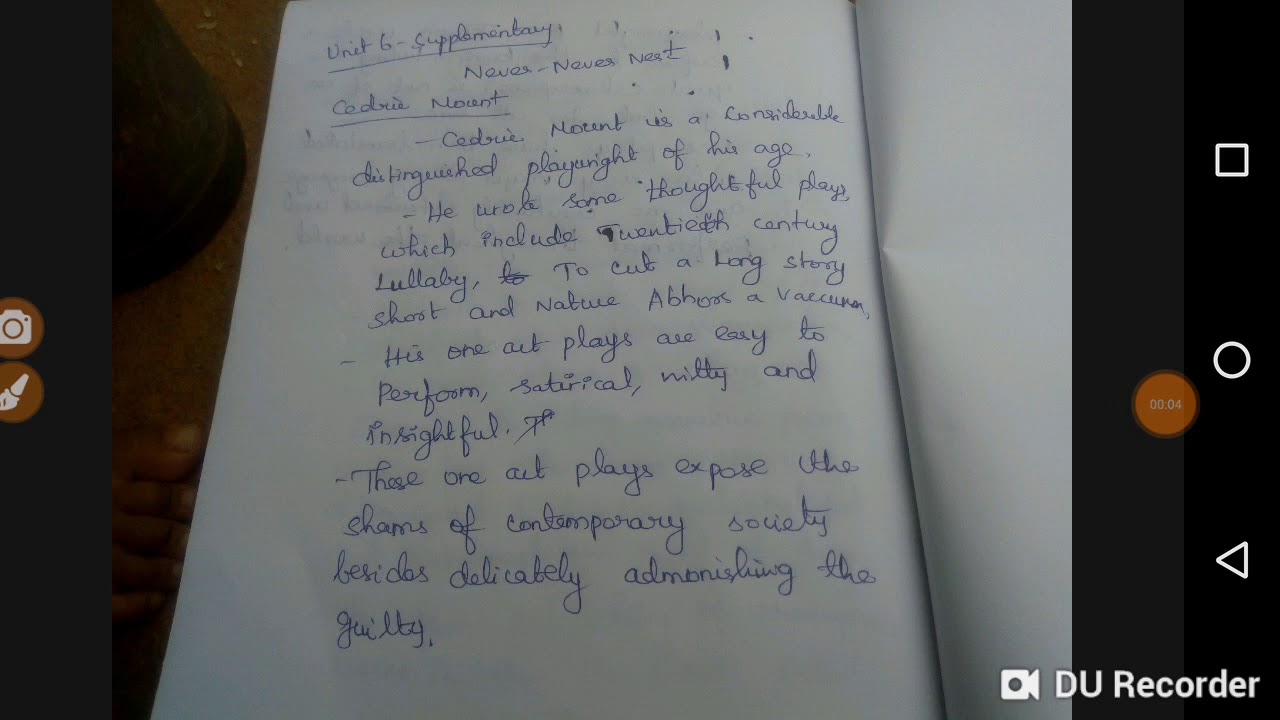 Unit 6 - Supplementary
Never - Never Nest
Cedric Mount
- Cedric Mount is a considerable
distinguished playwright of his age.
- He wrote some thoughtful plays
which include Twentieth century
Lullaby, to To cut a Long story
short and Nature Abhors a Vaccum,
- His one act plays are easy to
Perform, satirical, witty and
insightful. Th
- These one act plays expose the
shams of contemporary society
besides delicately admonishing the
guilty.
00:04
DU Recorder